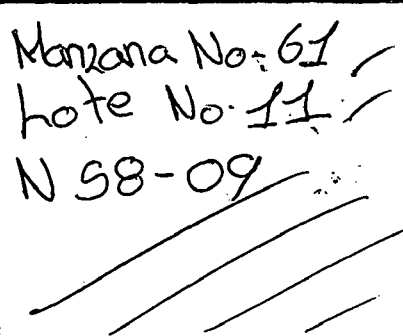 Manzana No. 61
Lote No. 11
N S8-09